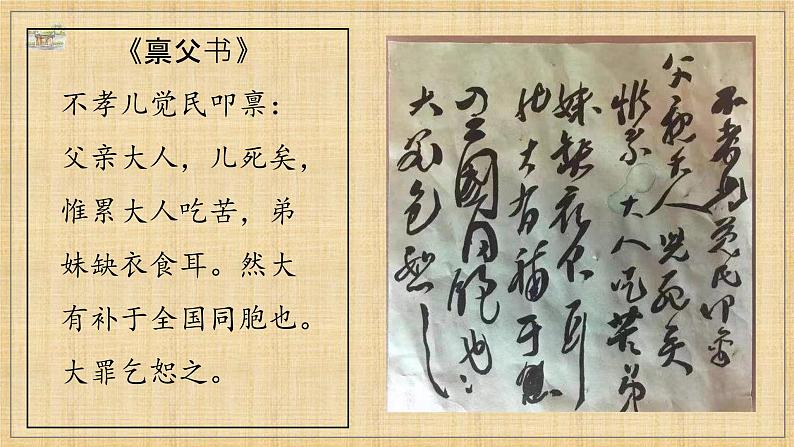 《禀父书》
不孝儿觉民叩禀：
父亲大人，儿死矣，
惟累大人吃苦，弟
妹缺衣食耳。然大
有补于全国同胞也。
大罪乞恕之。
不孝儿觉民叩禀
父亲大人 儿死矣
惟累大人吃苦弟
妹缺衣食耳
然大有补于全
国同胞也
大罪乞恕之